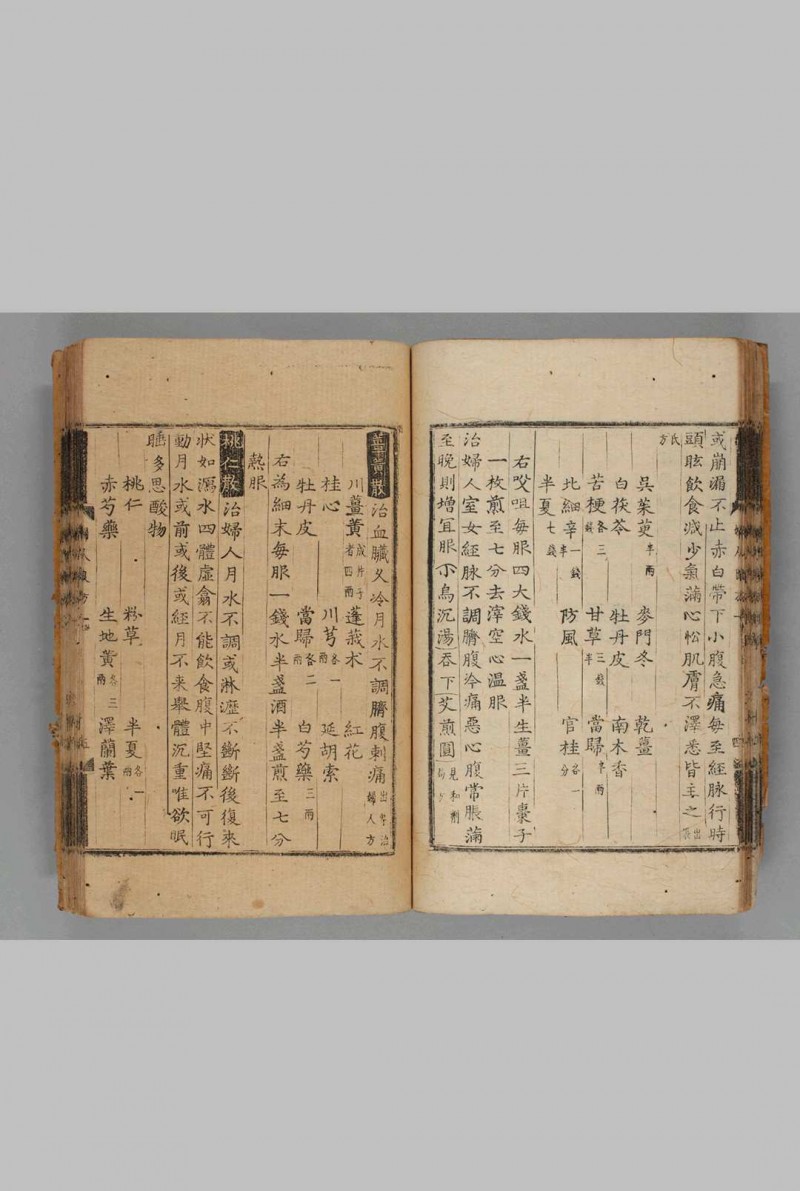 或崩漏不止赤白帶下小腹急痛每至經脉行時
頭眩飲食減少氣滿心忪肌膚不澤悉皆主之出張
氏方
吳茱萸半兩 麥門冬 乾薑
白茯苓 牡丹皮 南木香
苦梗各三錢 甘草三錢半 當歸半兩
北細辛一錢半 防風 官桂各一分
半夏七錢
右㕮咀每服四大錢水一盞半生薑三片棗子
一枚煎至七分去滓空心温服
治婦人室女經脉不調臍腹冷痛惡心腹常脹滿
至晚則増冝服下烏沉湯吞下艾煎圓見和劑
薑黄散治血臟久冷月水不調臍腹刺痛出專治婦人方
川薑黄成片子者四兩 蓬莪朮 紅花
桂心 川芎各一兩 延胡索
牡丹皮 當歸各二兩 白芍藥三兩
右為細末每服一錢水半盞酒半盞煎至七分
熱服
桃仁散治婦人月水不調或淋瀝不斷斷後復來
狀如瀉水四體虛翕不能飲食腹中堅痛不可行
動月水或前或後或經月不来舉體沉重唯欲眠
睡多思酸物
桃仁 粉草 半夏各一兩
赤芍藥 生地黄各三兩 澤蘭葉